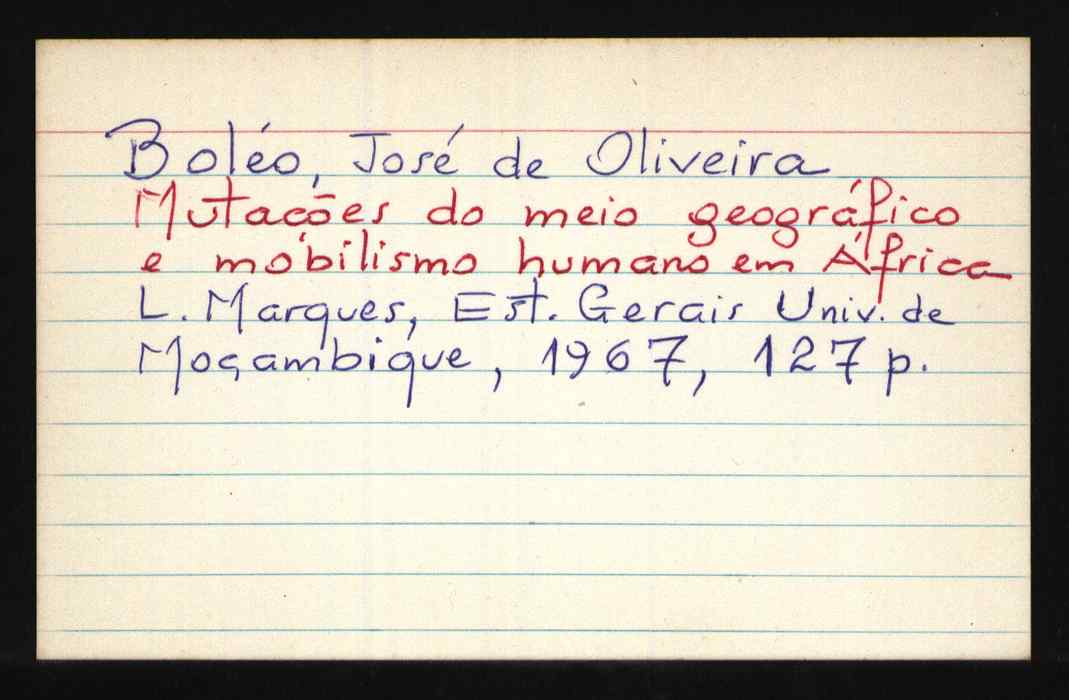 Boléo, José de Oliveira
Mutações do meio geográfico
e mobilismo humano em África
L. Marques, Est. Gerais Univ. de
Moçambique, 1967, 127 p.